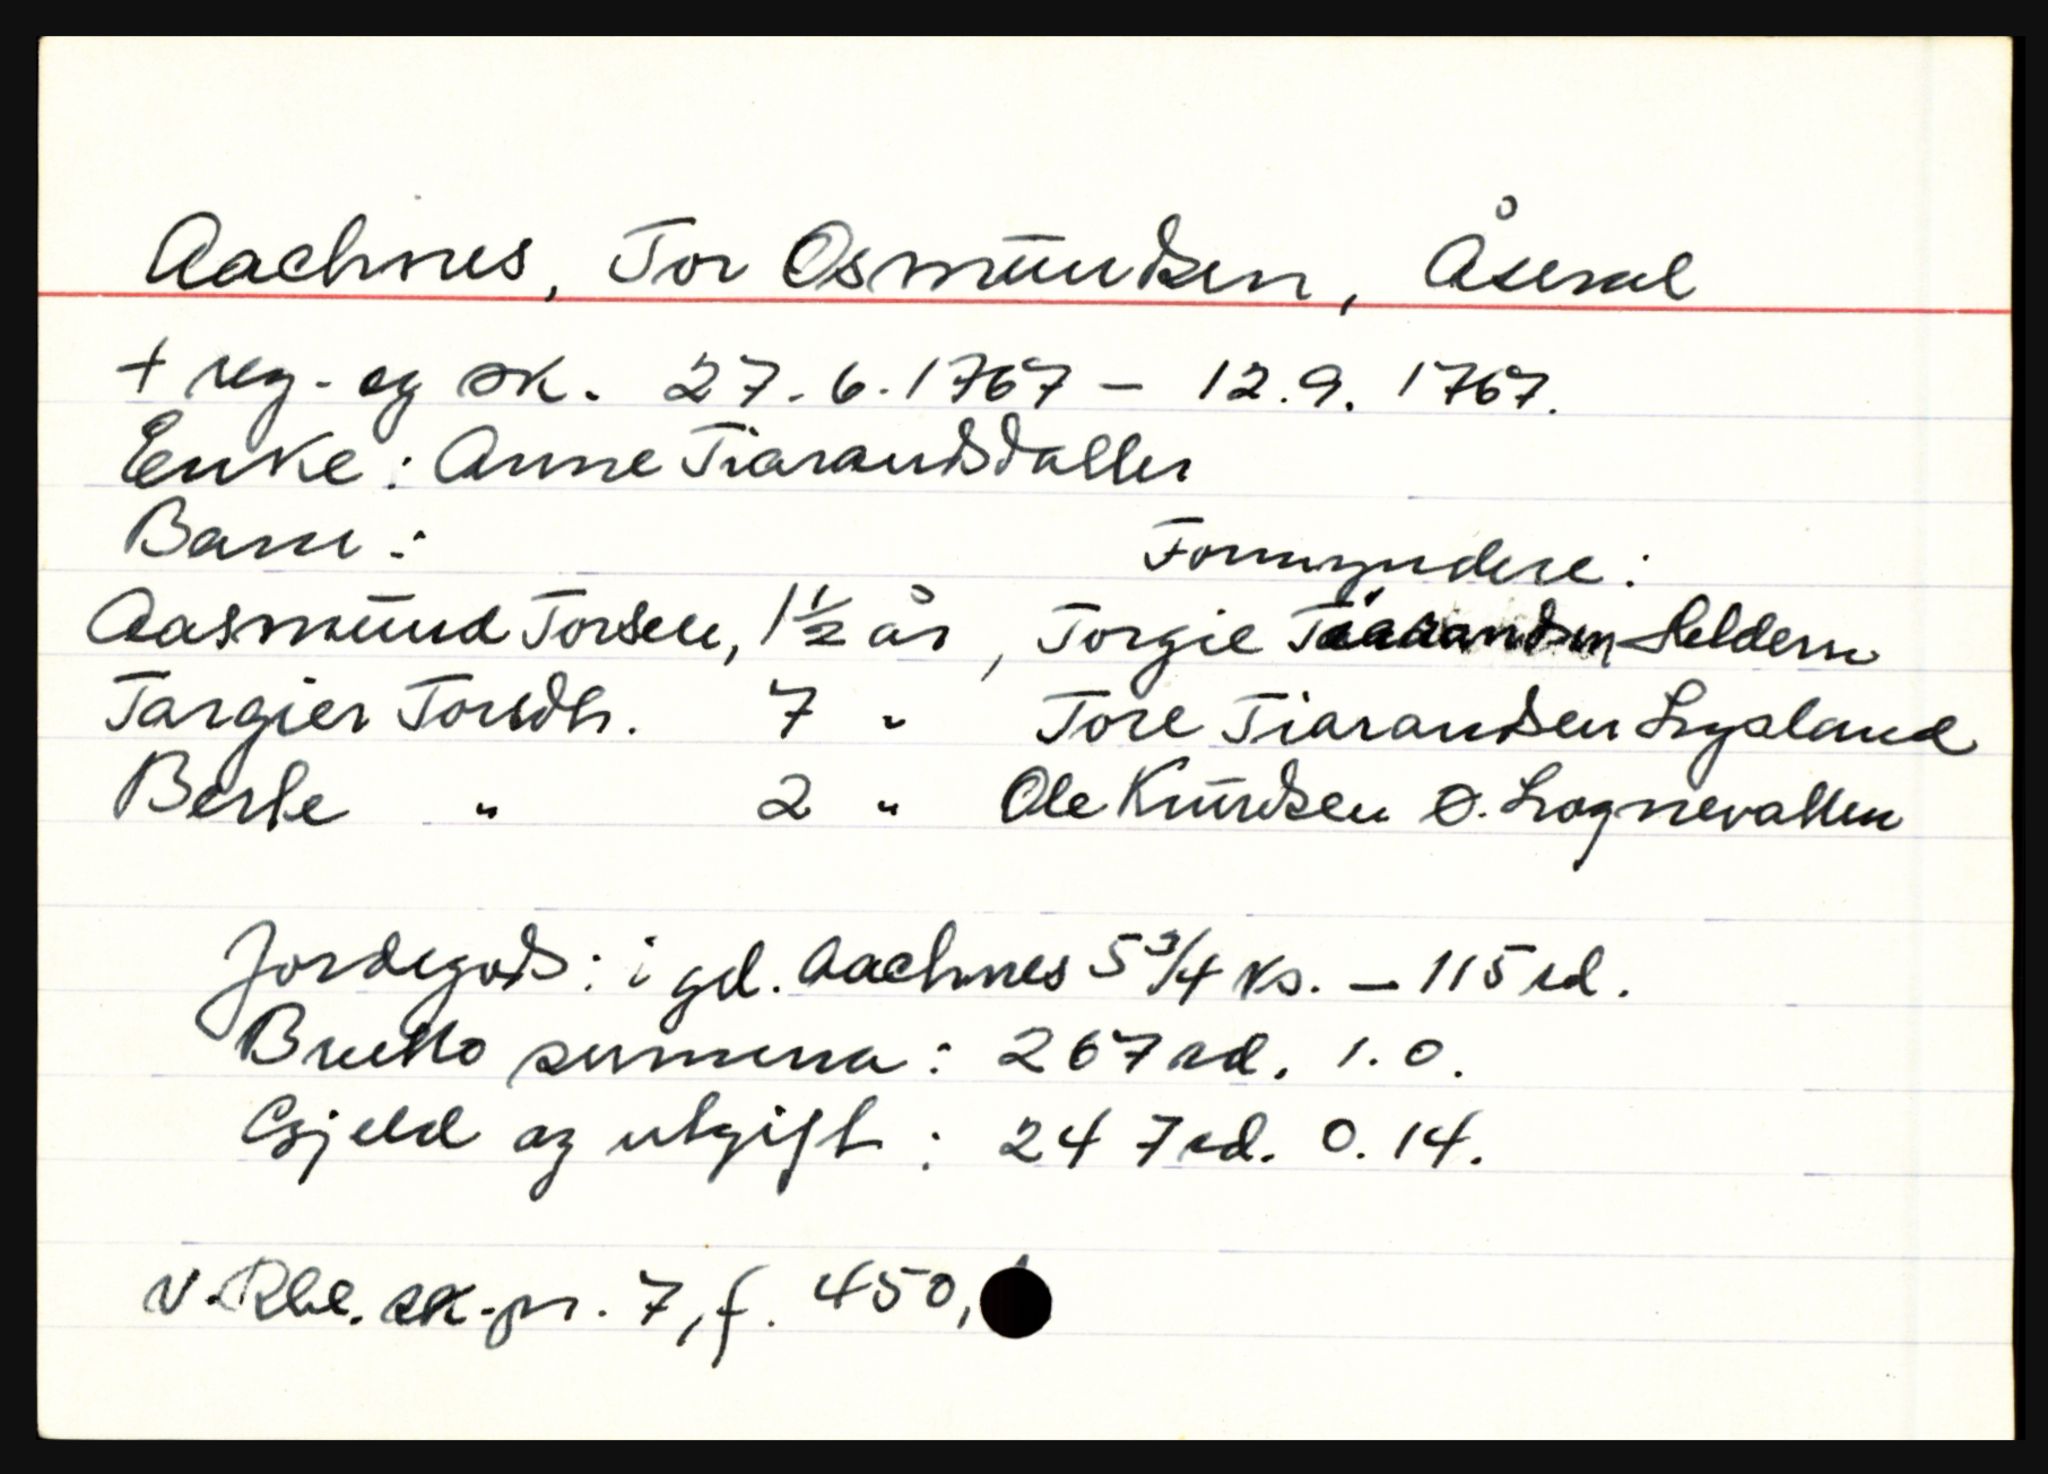 Aachnes, Tor Osmundsen, Åseral
+ reg- og sk. 27.6.1767 - 12.9.1767.
Enke: Anne Tiarandsdatter
Barn:
Formyndere:
Aasmund Torsen, 1 1/2 år, Torgie Tiarandsen
Targier Torsdtr. 7 " Tore Tiarandsen Lysland
Berte " 2 " Ole Knudsen Ø. Lognevatten
Jordegods: i gd. Aachnes 5 3/4 ks. - 115 rd.
Brutto summa: 267 rd. 1.0.
Gjeld og utgift: 247 rd. 0.14.
N. Rbl. sk-pr. 7, f. 450,